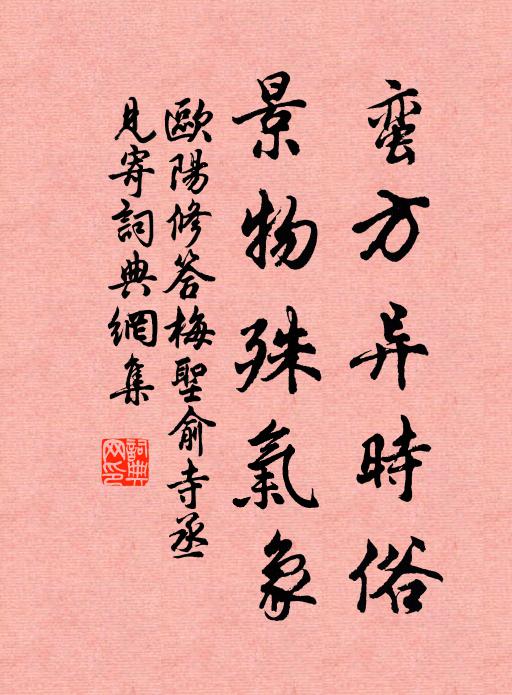 蛮方异時俗
景物殊氣象
歐陽修答梅聖俞寺丞
見寄詞典網集
詞典網印